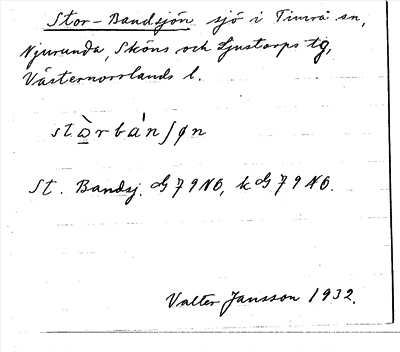 Stor-Bandsjön, sjö i Timrå sn,
Njurunda, Sköns och Ljustorps tg,
Västernorrlands l.
stɔ̀rbánʃøn
St. Bandsj. G79NO, k G79NO.
Valter Jansson 1932.